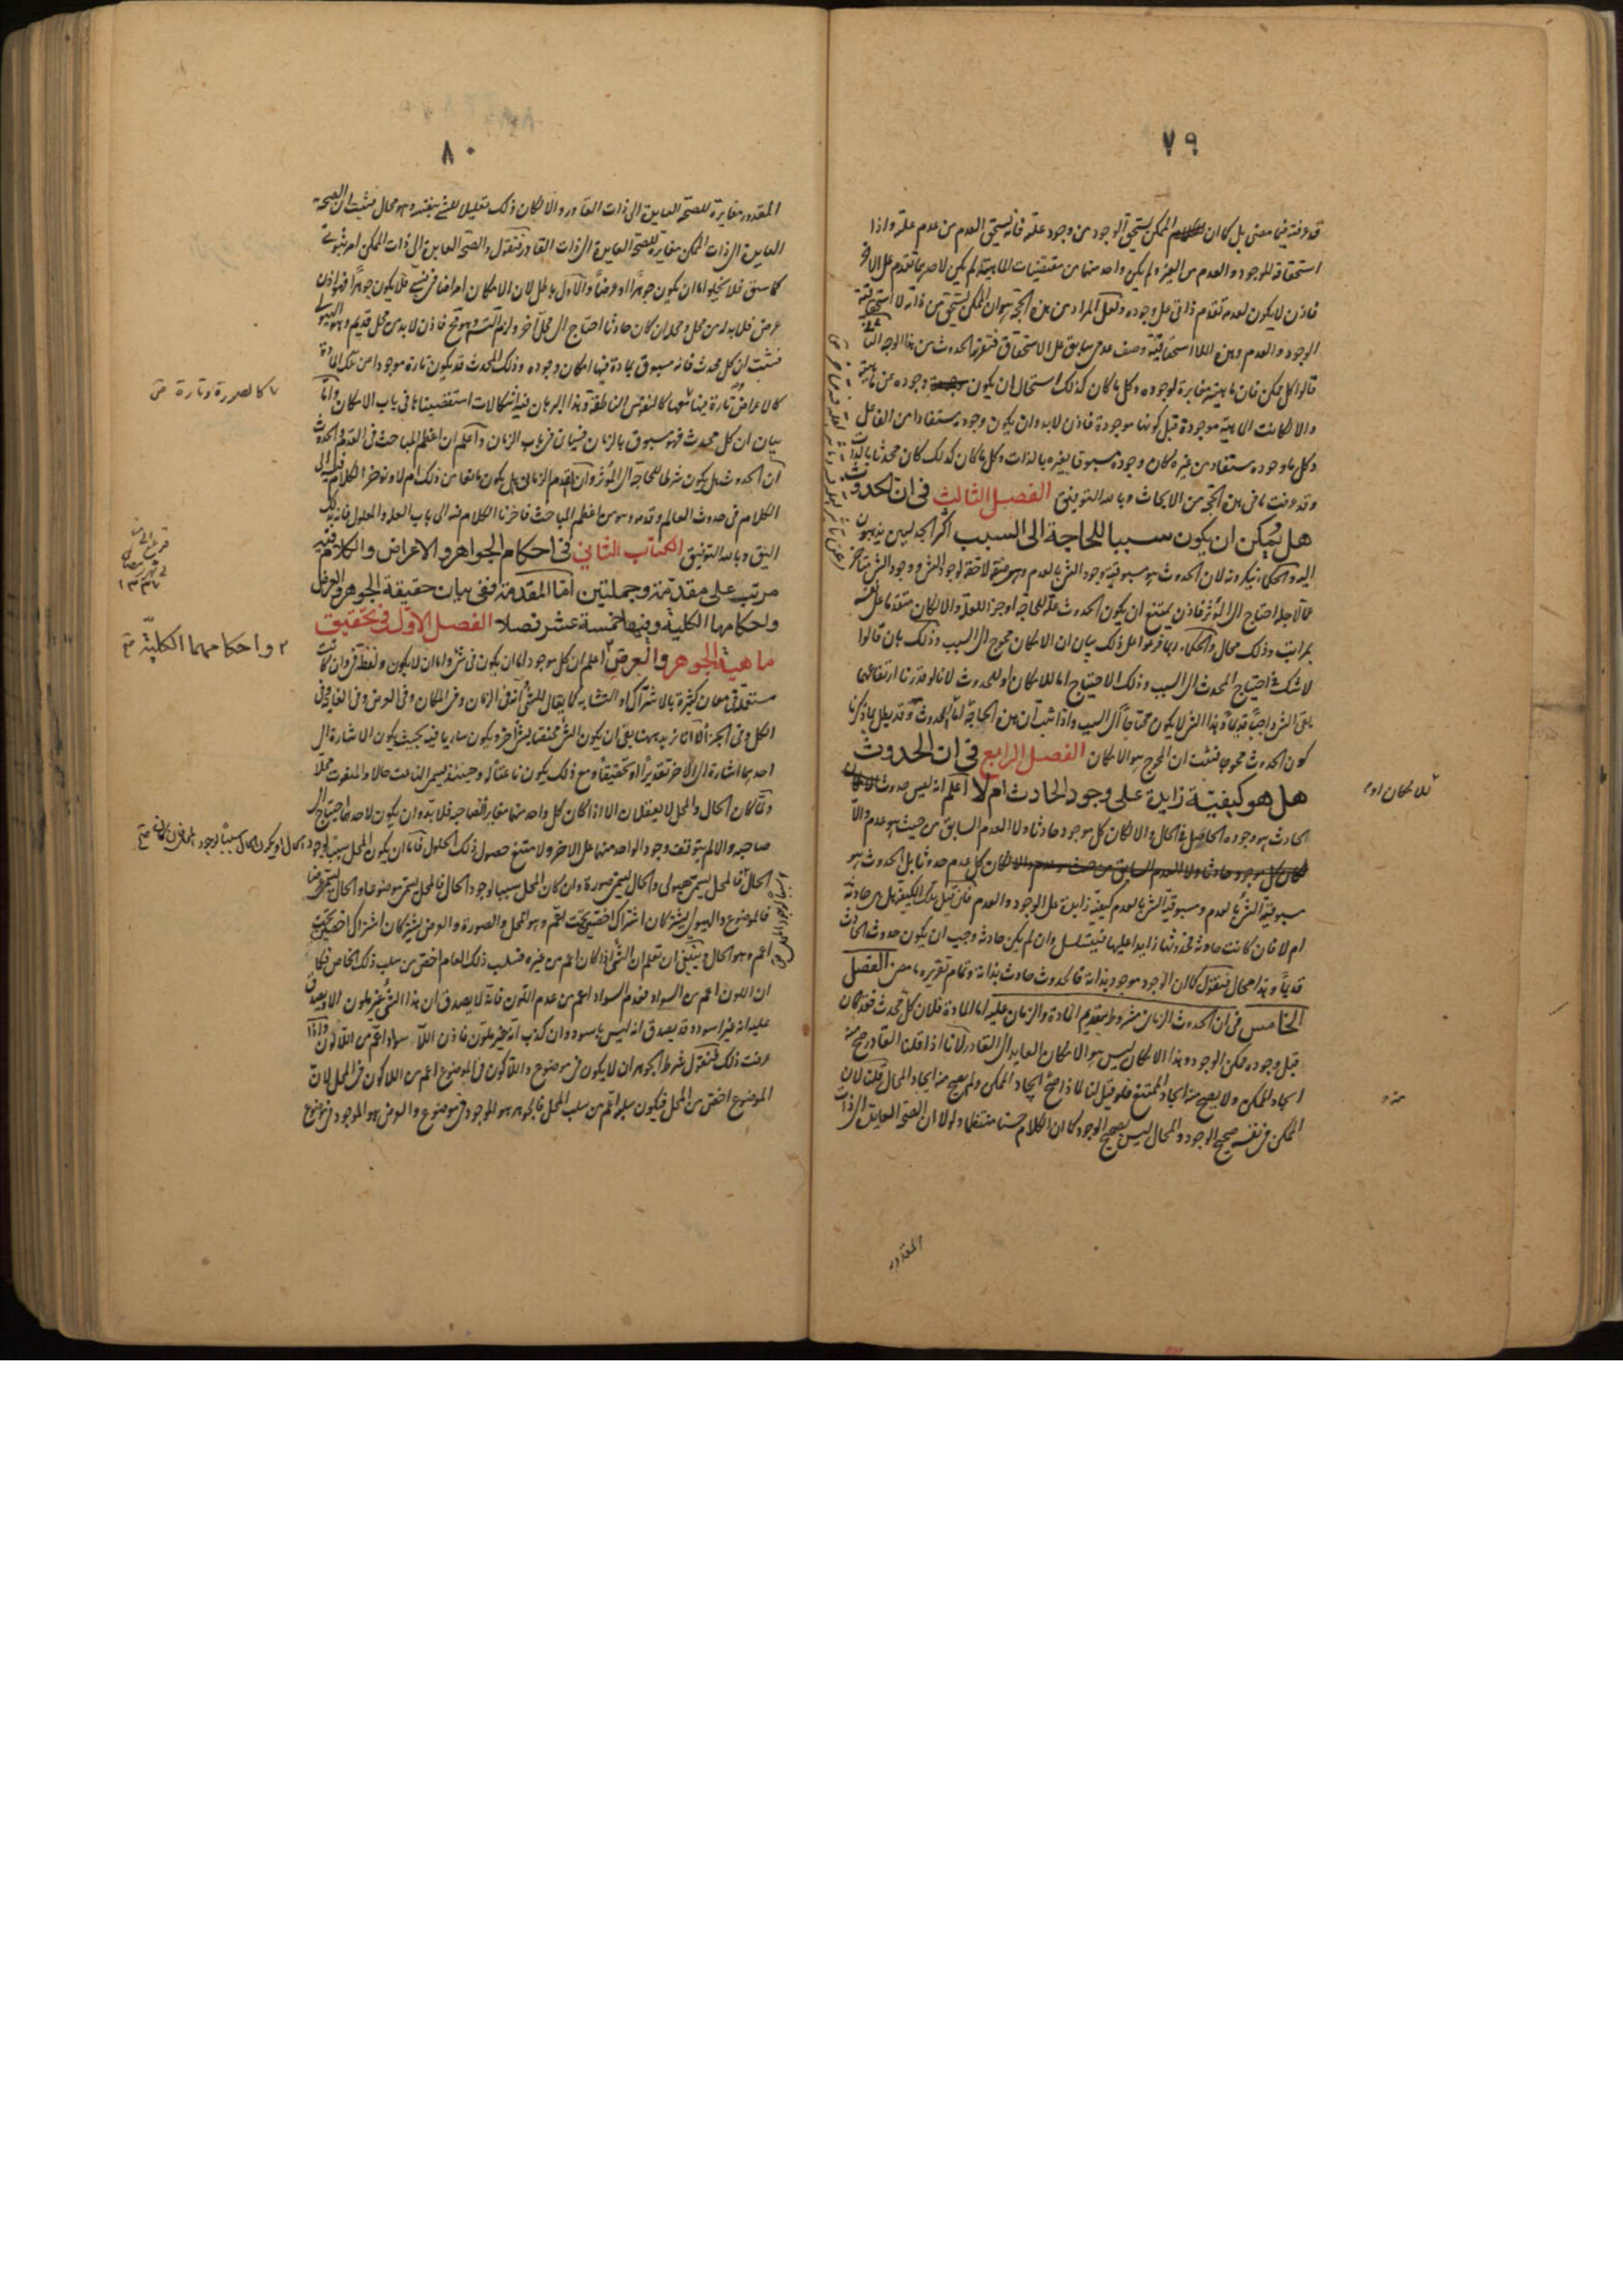 ٧٩
قد عرفته فيما مضى بل كان الممكن يستحق الوجود من وجود علته فانه يستحق العدم من عدم علته واذا
استحقاقه للوجود والعدم من الغير ولم يكن واحد منهما من مقتضيات الماهية لم يكن لاحدهما تقدم على الاخر
فاذن لا يكون لعدمه تقدم ذاتى على وجوده ولعل المراد من هذه الحجة هو ان الممكن يستحق من ذاته لا استحقاقية
الوجود والعدم وهذه اللااستحقاقية وصف عدمى سابق على الاستحقاق فتقرر الحدوث من هذا الوجه
قالوا كل ممكن فان ماهيته مغايرة لوجوده وكل ما كان كذلك استحال ان يكون وجوده من ماهيته
والا لكانت الماهية موجودة قبل كونها موجودة فاذن لا بد وان يكون وجوده مستفادا من الفاعل
وكل ما وجوده مستفاد من غيره كان وجوده مسبوقا بغيره بالذات وكل ما كان كذلك كان محدثا بالذات
وقد عرفت ما فى هذه الحجة من الابحاث وبالله التوفيق الفصل الثالث فى ان الحدوث
هل يمكن ان يكون سببا للحاجة الى السبب اكثر الجدليين يذهبون
اليه والحكماء ينكرونه لان الحدوث هو مسبوقية وجود الشئ بالعدم وهو صفة لاحقة لوجود الشئ ووجود الشئ متأخر
عما لاجله احتاج الى المؤثر فاذن يمتنع ان يكون الحدوث علة للحاجة او جزءا للعلة والا لكان متقدما على نفسه
بمراتب وذلك محال والحكماء ربما فرعوا على ذلك بيان ان الامكان محوج الى السبب وذلك بان قالوا
لا شك احتياج المحدث الى السبب وذلك الاحتياج اما للامكان او للحدوث لانا لو قدرنا ارتفاعهما
بقى الشئ واجبا قديما وهذا الشئ لا يكون محتاجا الى السبب واذا ثبت ان هذه الحاجة اما للحدوث وقد بطل بما ذكرنا
كون الحدوث محوجا فثبت ان المحوج هو الامكان الفصل الرابع فى ان الحدوث
هل هو كيفية زايدة على وجود الحادث ام لا اعلم انه ليس حدوث
الحادث هو وجوده الحاصل فى الحال والا لكان كل موجود حادثا ولا العدم السابق من حيث هو عدم والا
لكان كل عدم حدوثا بل الحدوث هو
مسبوقية الشئ بالعدم ومسبوقية الشئ بالعدم كيفية زايدة على الوجود والعدم فان قيل تلك الكيفية هل هى حادثة
ام لا فان كانت حادثة فحدوثها زايد عليها فيتسلسل وان لم يكن حادثة وجب ان يكون حدوث الحادث
قديما وهذا محال فنقول كما ان الوجود موجود بذاته فالحدوث حادث بذاته وتمام تقريره ما مضى الفصل
الخامس فى ان الحدوث الزمانى مشروط بتقديم المادة والزمان عليه اما المادة فلان كل محدث فقد كان
قبل وجوده ممكن الوجود وهذا الامكان ليس هو الامكان العايد الى القادر لانا اذا قلنا القادر صح منه
ايجاد الممكن ولا يصح منه ايجاد الممتنع فلو قيل لنا لماذا صح ايجاد الممكن ولم يصح منه ايجاد المحال قلنا لان
الممكن فى نفسه صحيح الوجود والمحال ليس بصحيح الوجود كان الكلام حسنا منتظما ولولا ان الصحة العايدة الى ذات
المقدور
٨٠
المقدور مغايرة للصحة العايدة الى ذات القادر والا لكان ذلك تعليلا للشئ بنفسه وهو محال فثبت ان الصحة
العايدة الى ذات الممكن مغايرة للصحة العايدة الى ذات القادر فنقول والصحة العايدة الى ذات الممكن امر ثبوتى
كما سبق فلا يخلو اما ان يكون جوهرا او عرضا والاول باطل لان الامكان امر اضافى فلا يكون جوهرا فهو اذن
عرض فلا بد له من محل ومحله ان كان حادثا احتاج الى محل آخر ولزم التسلسل وهو محال فاذن لا بد من محل قديم وهو الهيولى
فثبت ان كل محدث فانه مسبوق بمادة فيها امكان وجوده وذلك المحدث قد يكون تارة موجودا من تلك المادة
كالاعراض وتارة فيها كالنفوس الناطقة وهذا البرهان فيه اشكالات استقصيناها فى باب الامكان واما
بيان ان كل محدث فهو مسبوق بالزمان فسيأتى فى باب الزمان واعلم ان اعظم المباحث فى القدم والحدوث
ان الحدوث هل يكون شرطا للحاجة الى المؤثر وان القدم الزمانى هل يكون مانعا من ذلك ام لا
الكلام فى حدوث العالم وقدمه وهو من اعظم المباحث فاخرنا الكلام فيه الى باب العلة والمعلول فانه بذلك
اليق وبالله التوفيق الكتاب الثانى فى احكام الجواهر والاعراض والكلام فيه
مرتب على مقدمة وجملتين اما المقدمة ففى بيان حقيقة الجوهر والعرض
واحكامها الكلية وفيها خمسة عشر فصلا الفصل الاول فى تحقيق
ماهية الجوهر والعرض اعلم ان كل موجود اما ان يكون فى شئ او اما ان لا يكون ولفظة فى وان كانت
مستعملة فى معان كثيرة بالاشتراك او التشابه كما يقال للشئ انه فى الزمان وفى المكان وفى العرض وفى الغاية وفى
الكل وفى الجزء الا انا نريد بها ان يكون الشئ مختصا بشئ آخر ويكون ساريا فيه بحيث يكون الاشارة الى
احدهما اشارة الى الآخر تقديرا او تحقيقا ومع ذلك يكون ناعتا له وحينئذ يسمى الناعت حالا والمنعوت محلا
ولما كان الحال والمحل لا يعقلان الا اذا كان كل واحد منهما مغاير لصاحبه فلا بد وان يكون لاحدهما احتياج الى
صاحبه والا لم يتوقف وجود الواحد منهما على الاخر ولامتنع حصول ذلك الحلول فاما ان يكون المحل سببا لوجود
الحال فالمحل يسمى هيولى والحال يسمى صورة وان كان المحل سببا لوجود الحال فالمحل يسمى موضوعا والحال يسمى عرضا
فالموضوع والهيولى يشتركان اشتراك اخصين تحت اعم وهو المحل والصورة والعرض يشتركان اشتراك اخصين تحت
اعم وهو الحال وينبغى ان تعلم ان الشئ اذا كان اعم من غيره فسلب ذلك العام اخص من سلب ذلك الخاص فكما
ان اللون اعم من السواد فعدم السواد اعم من عدم اللون فانه لا يصدق ان هذا الشئ غير ملون الا ويصدق
عليه انه غير اسود وقد يصدق انه ليس باسود وان كذب انه غير ملون فاذن اللا سواد اعم من اللالون واذا
عرفت ذلك فنقول شرط الجوهر ان لا يكون فى موضوع واللاكون فى الموضوع اعم من اللاكون فى المحل لان
الموضوع اخص من المحل فيكون سلبه اعم من سلب المحل فالجوهر هو الموجود لا فى موضوع والعرض هو الموجود فى موضوع
كالصورة وتارة
واحكامهما الكلية